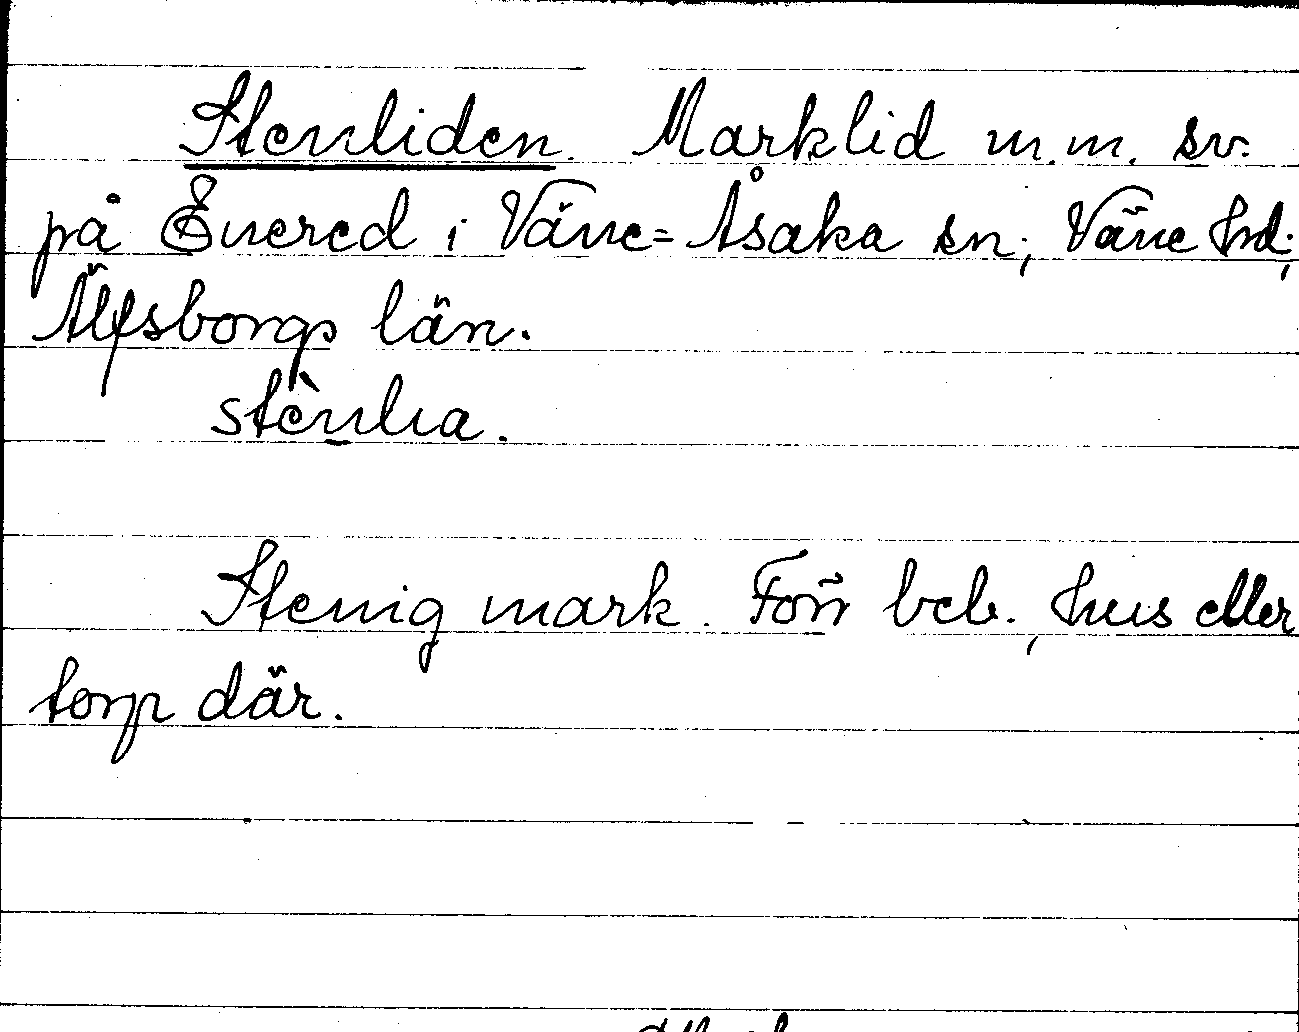 Stenliden. Marklid m.m. sv.
på Enered i Väne=Åsaka sn, Väne hd,
Älfsborgs län.
stènlıa.
Stenig mark. Förr beb., hus eller
torp där.